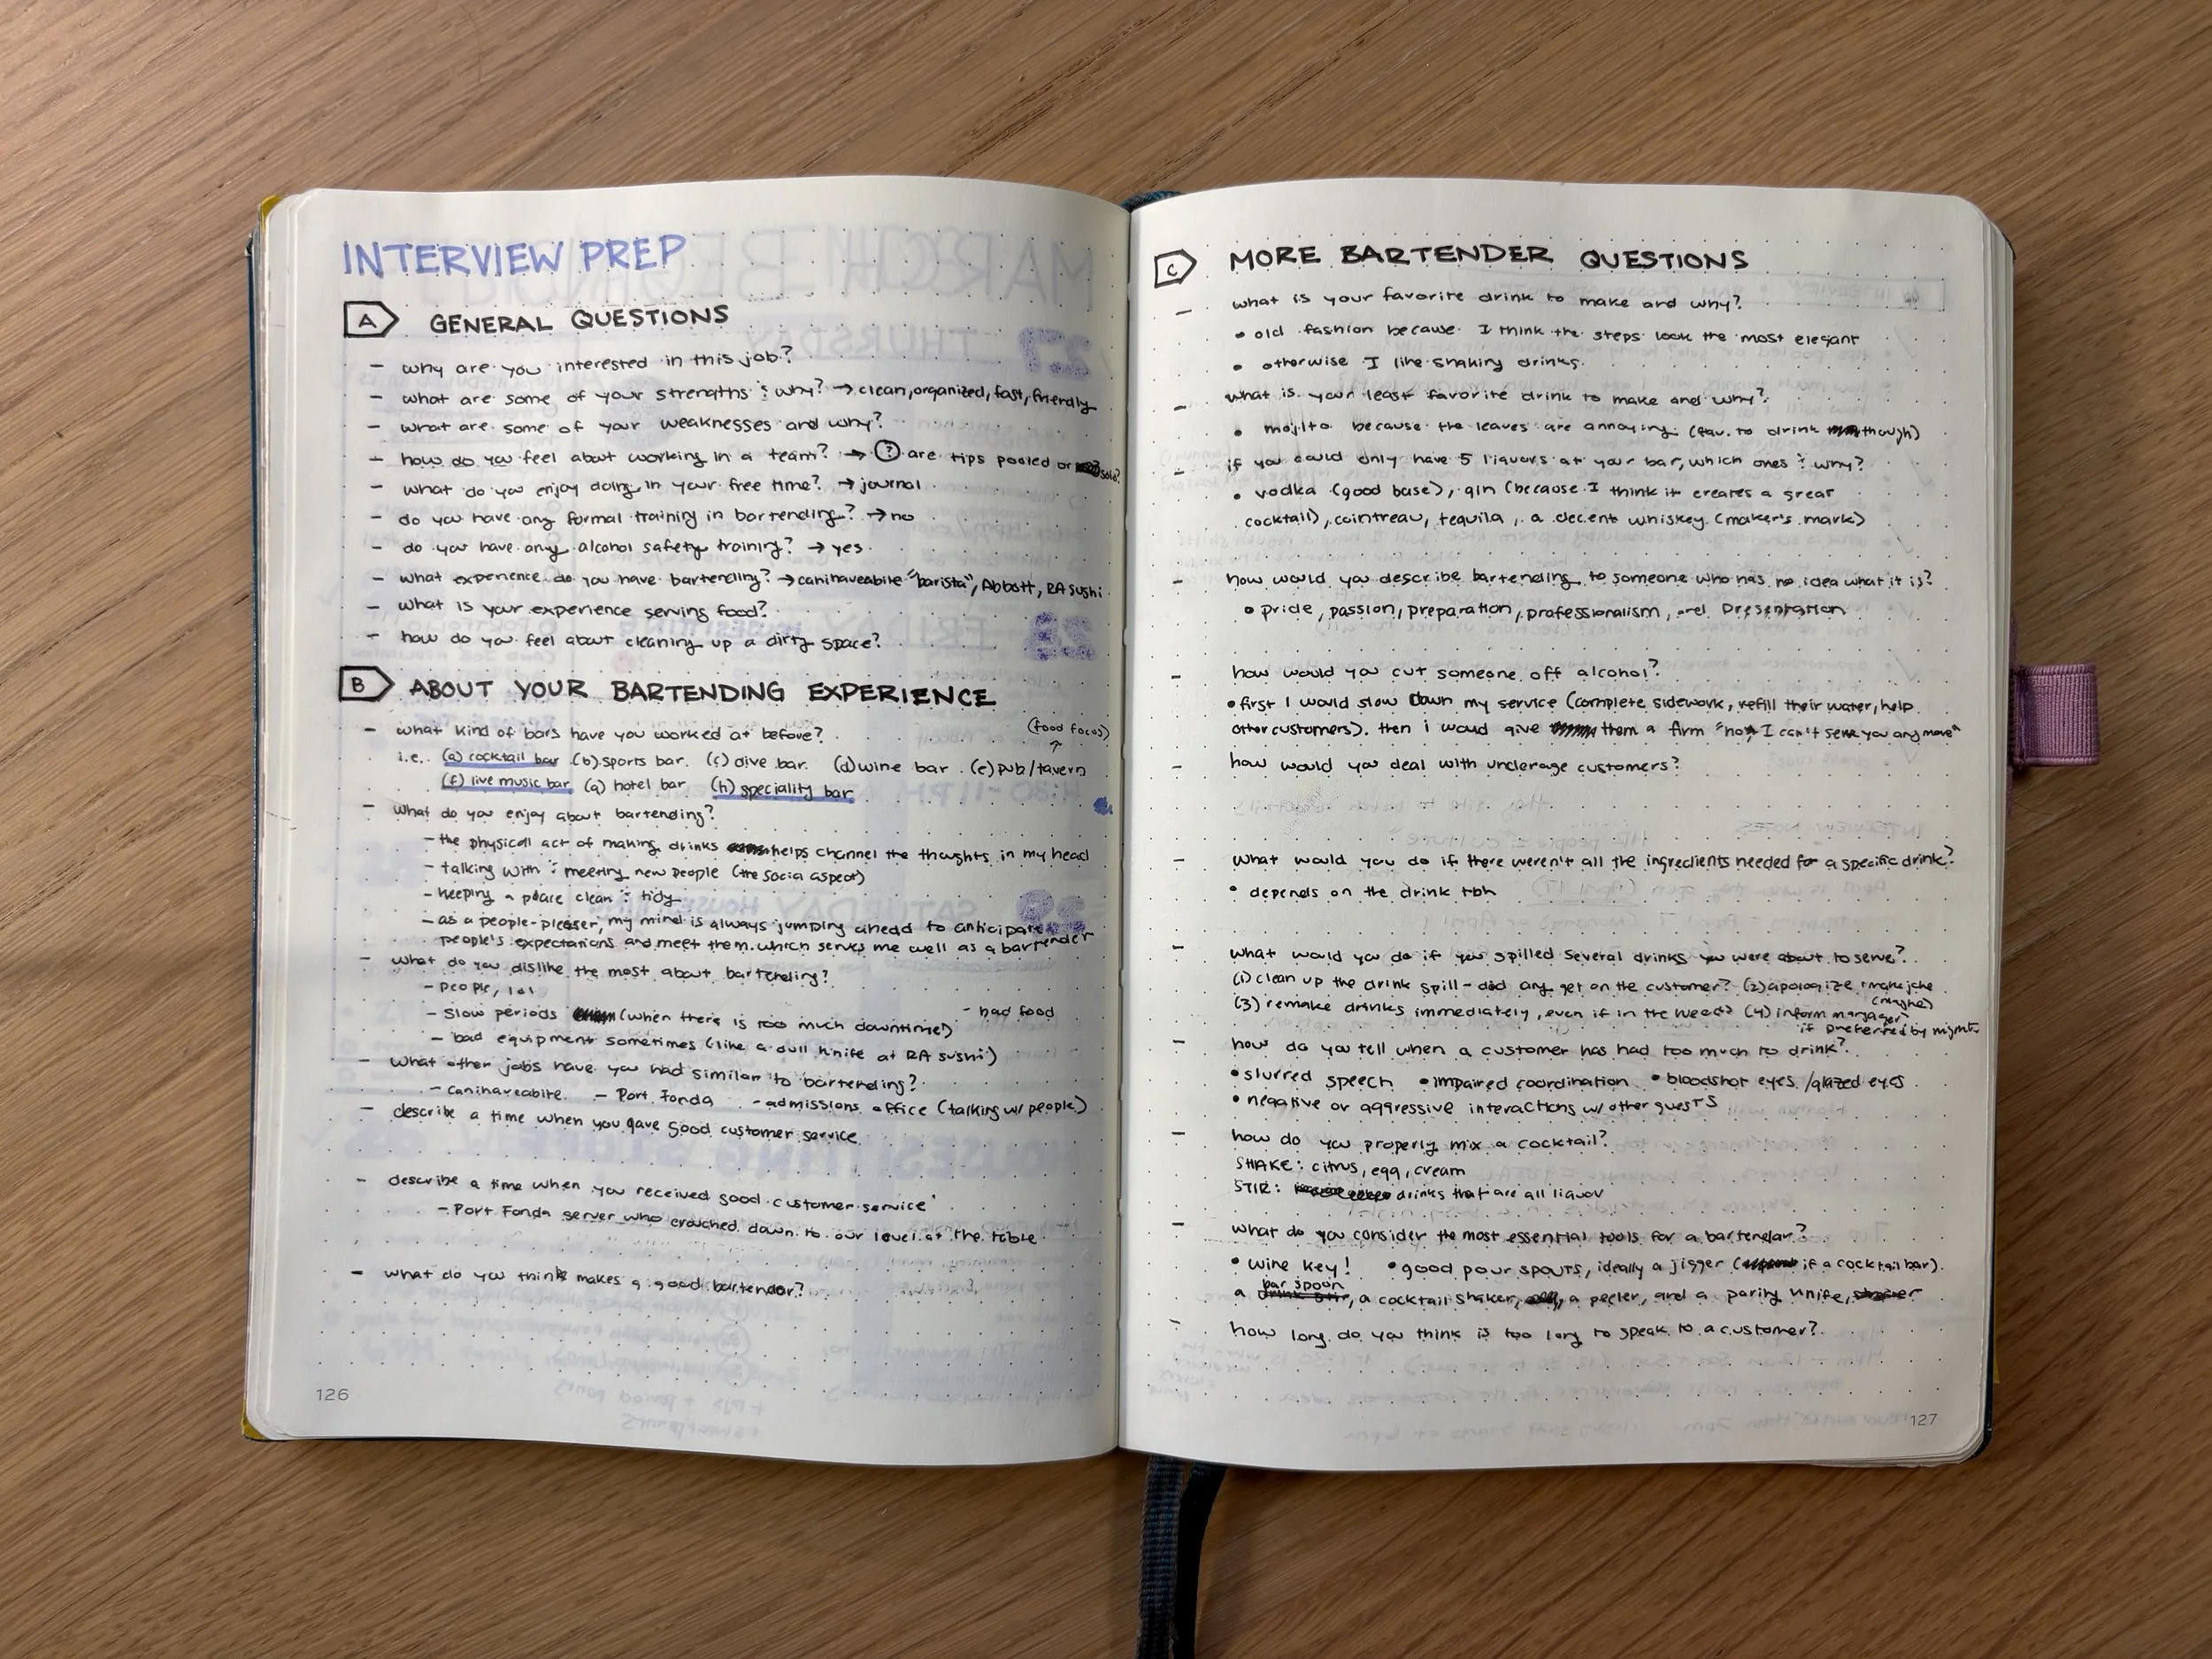 INTERVIEW PREP
A GENERAL QUESTIONS
- why are you interested in this job?
- what are some of your strengths & why? → clean, organized, fast, friendly
- what are some of your weaknesses and why?
- how do you feel about working in a team? → ? are tips pooled or solo?
- what do you enjoy doing in your free time? → journal
- do you have any formal training in bartending? → no
- do you have any alcohol safety training? → yes
- what experience do you have bartending? → canihaveabite "barista", Abbott, RA sushi
- what is your experience serving food?
- how do you feel about cleaning up a dirty space?
B ABOUT YOUR BARTENDING EXPERIENCE
- what kind of bars have you worked at before?
(food focus)
i.e. (a) cocktail bar (b) sports bar (c) dive bar (d) wine bar (e) pub/tavern
(f) live music bar (g) hotel bar (h) speciality bar
- what do you enjoy about bartending?
- the physicall act of making drinks helps channel the thoughts in my head
- talking with & meeting new people (the social aspect)
- keeping a place clean & tidy
- as a people-pleaser, my mind is always jumping ahead to anticipate
people's expectations and meet them. which serves me well as a bartender
- what do you dislike the most about bartending?
- people, lol
- slow periods (when there is too much downtime) - bad food
- bad equipment sometimes (like a dull knife at RA sushi)
- what other jobs have you had similar to bartending?
- canihaveabite - Port Fonda - admissions office (talking w/ people)
- describe a time when you gave good customer service
- describe a time when you received good customer service
- Port Fonda server who crouched down to our level at the table
- what do you think makes a good bartender?
126
C MORE BARTENDER QUESTIONS
- what is your favorite drink to make and why?
• old fashion because I think the steps look the most elegant
• otherwise I like shaking drinks.
- what is your least favorite drink to make and why?
• mojito because the leaves are annoying (fav. to drink though)
- if you could only have 5 liquors at your bar, which ones & why?
• vodka (good base), gin (because I think it creates a great
cocktail), cointreau, tequila, a decent whiskey (maker's mark)
- how would you describe bartending to someone who has no idea what it is?
• pride, passion, preparation, professionalism, and Presentation
- how would you cut someone off alcohol?
• first I would slow down my service (complete sidework, refill their water, help
other customers). then i would give them a firm "no, I can't serve you any more"
- how would you deal with underage customers?
- what would you do if there weren't all the ingredients needed for a specific drink?
• depends on the drink tbh
- what would you do if you spilled several drinks you were about to serve?
(1) clean up the drink spill - did any get on the customer? (2) apologize + make joke
(maybe)
(3) remake drinks immediately, even if in the weeds (4) inform manager
if preferred by mgmt.
- how do you tell when a customer has had too much to drink?
• slurred speech • impaired coordination • bloodshot eyes / glazed eyes
• negative or aggressive interactions w/ other guests
- how do you properly mix a cocktail?
SHAKE: citrus, egg, cream
STIR: drinks that are all liquor
- what do you consider the most essential tools for a bartender?
• wine key! • good pour spouts, ideally a jigger (if a cocktail bar).
bar spoon
a drink stir, a cocktail shaker, a peeler, and a paring knife,
- how long do you think is too long to speak to a customer?
127